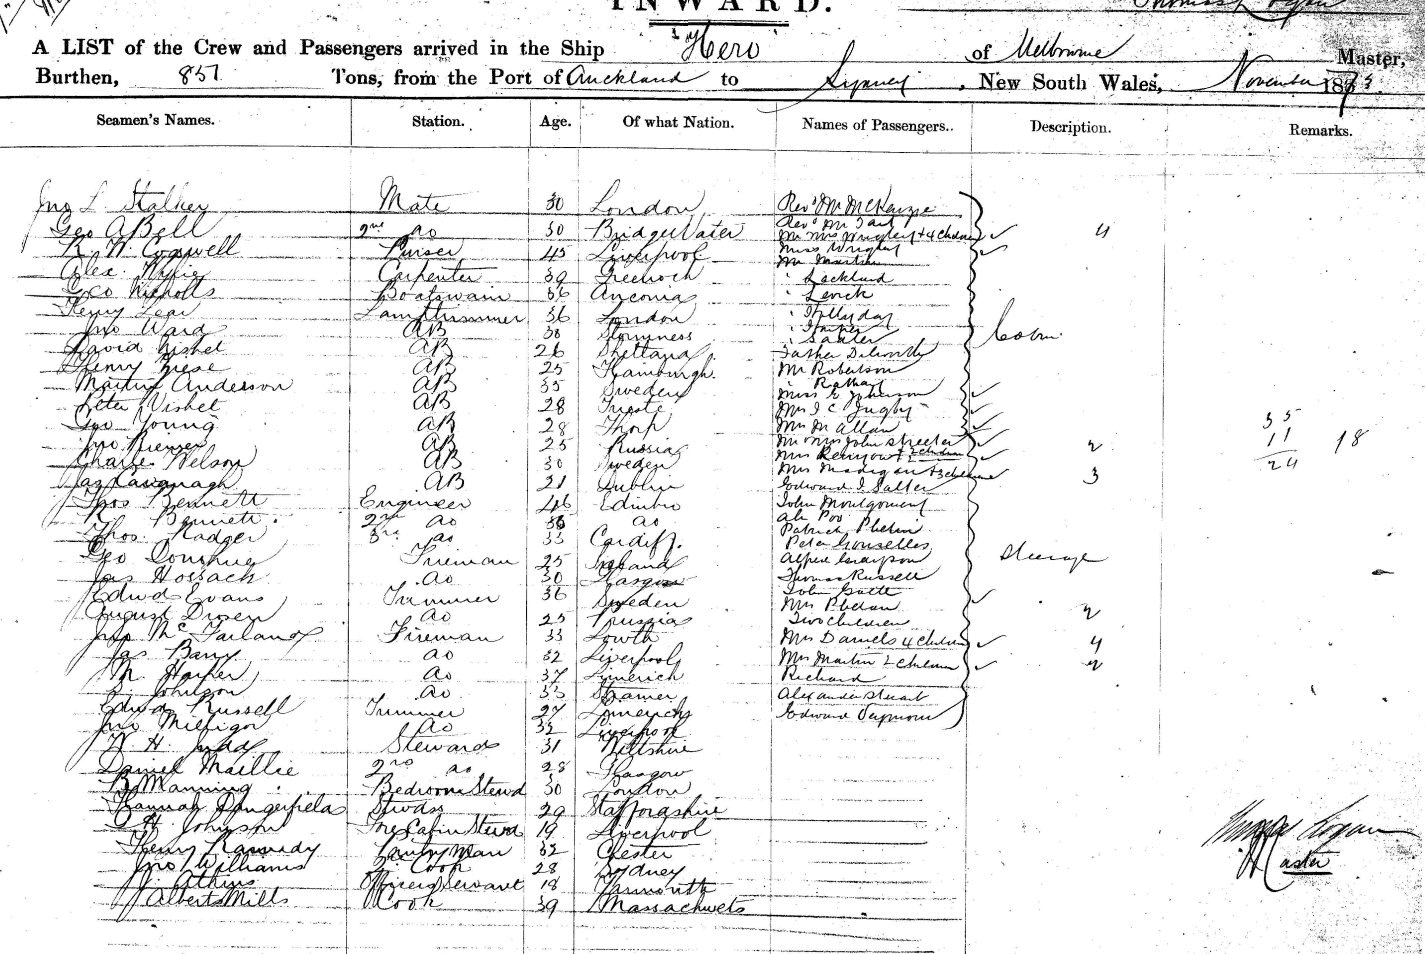 INWARD.
A LIST of the Crew and Passengers arrived in the Ship "Hero" of Melbourne Master,
Burthen, 851 Tons, from the Port of Auckland to Sydney, New South Wales, November 187
Seamen's Names. Station. Age. Of what Nation. Names of Passengers.. Description. Remarks.
Jno L. Stalker Mate 30 London Revd Mr McKenzie
Geo A Bell 2nd do 30 BridgeWater Revd Mr
R. W. Cogswell Purser 45 Liverpool Mr Mrs Wrigley + 4 children 4
Miss Wrigley
Alex. Wylie Carpenter 39 Greenock Mr Martin
Geo Nicholls Boatswain 36 Anconia " Lackland
Henry Lear Lamptrimmer 36 London
Jno Ward AB 38 Stromness " Hollyday
David AB 26 Shetland " Harper
" Salter
Henry AB 25 Hamburgh Father
Martin Anderson AB 35 Sweden Mr Robertson
Peter AB 28 Trieste Miss E Johnson
Geo Young AB 28 Mrs J C
Jno AB 25 Russia Mrs M Allan
Charles Nelson AB 30 Sweden Mr Mrs John Streeter 2
Jas Kavanagh AB 21 Dublin Mrs Kenyon + 2 children
Mrs Madigan + 3 children 3
Thos Bennett Engineer 46 Edinbro Edward J. Salter
R. Bennett 2nd do 36 do John Montgomery
Thos. Rodger 3rd do 33 Cardiff. Ah Poo
Patrick Phelan
Geo Donahue Fireman 25 Ireland Peter Gonselles
Jas Hossack do 30 Glasgow Alfred
Edwd Evans Trimmer 36 Sweden Thomas Russell
August do 25 Prussia John
Mrs Phelan
Jno McFarlane Fireman 33 Louth Two children 2
Jas Barry do 32 Liverpool Mrs Daniels 4 children 4
M. Harper do 37 Limerick Mrs Martin 2 children 2
Johnson do 33 Richard
Edwd Russell Trimmer 27 Limerick Alexander Stuart
Jno Milligan do 32 Liverpool Edward Seymour
W H. Judd Steward 31 Wiltshire
Daniel Maillie 2nd do 28 Glasgow
B. Manning Bedroom Stewd 30 London
Hannah Dangerfield Stwdss 29 Staffordshire
H Johnson Fore Cabin Stewd 19 Liverpool
Henry Kannedy Pantry Man 32 Chester
Jno Williams 2 Cook 28 Sydney
J. Atkins Officers Servant 18 Yarmouth
Albert Mills Cook 39 Massachusets
Cabin
Steerage
35
11
24
18
Logan
Master